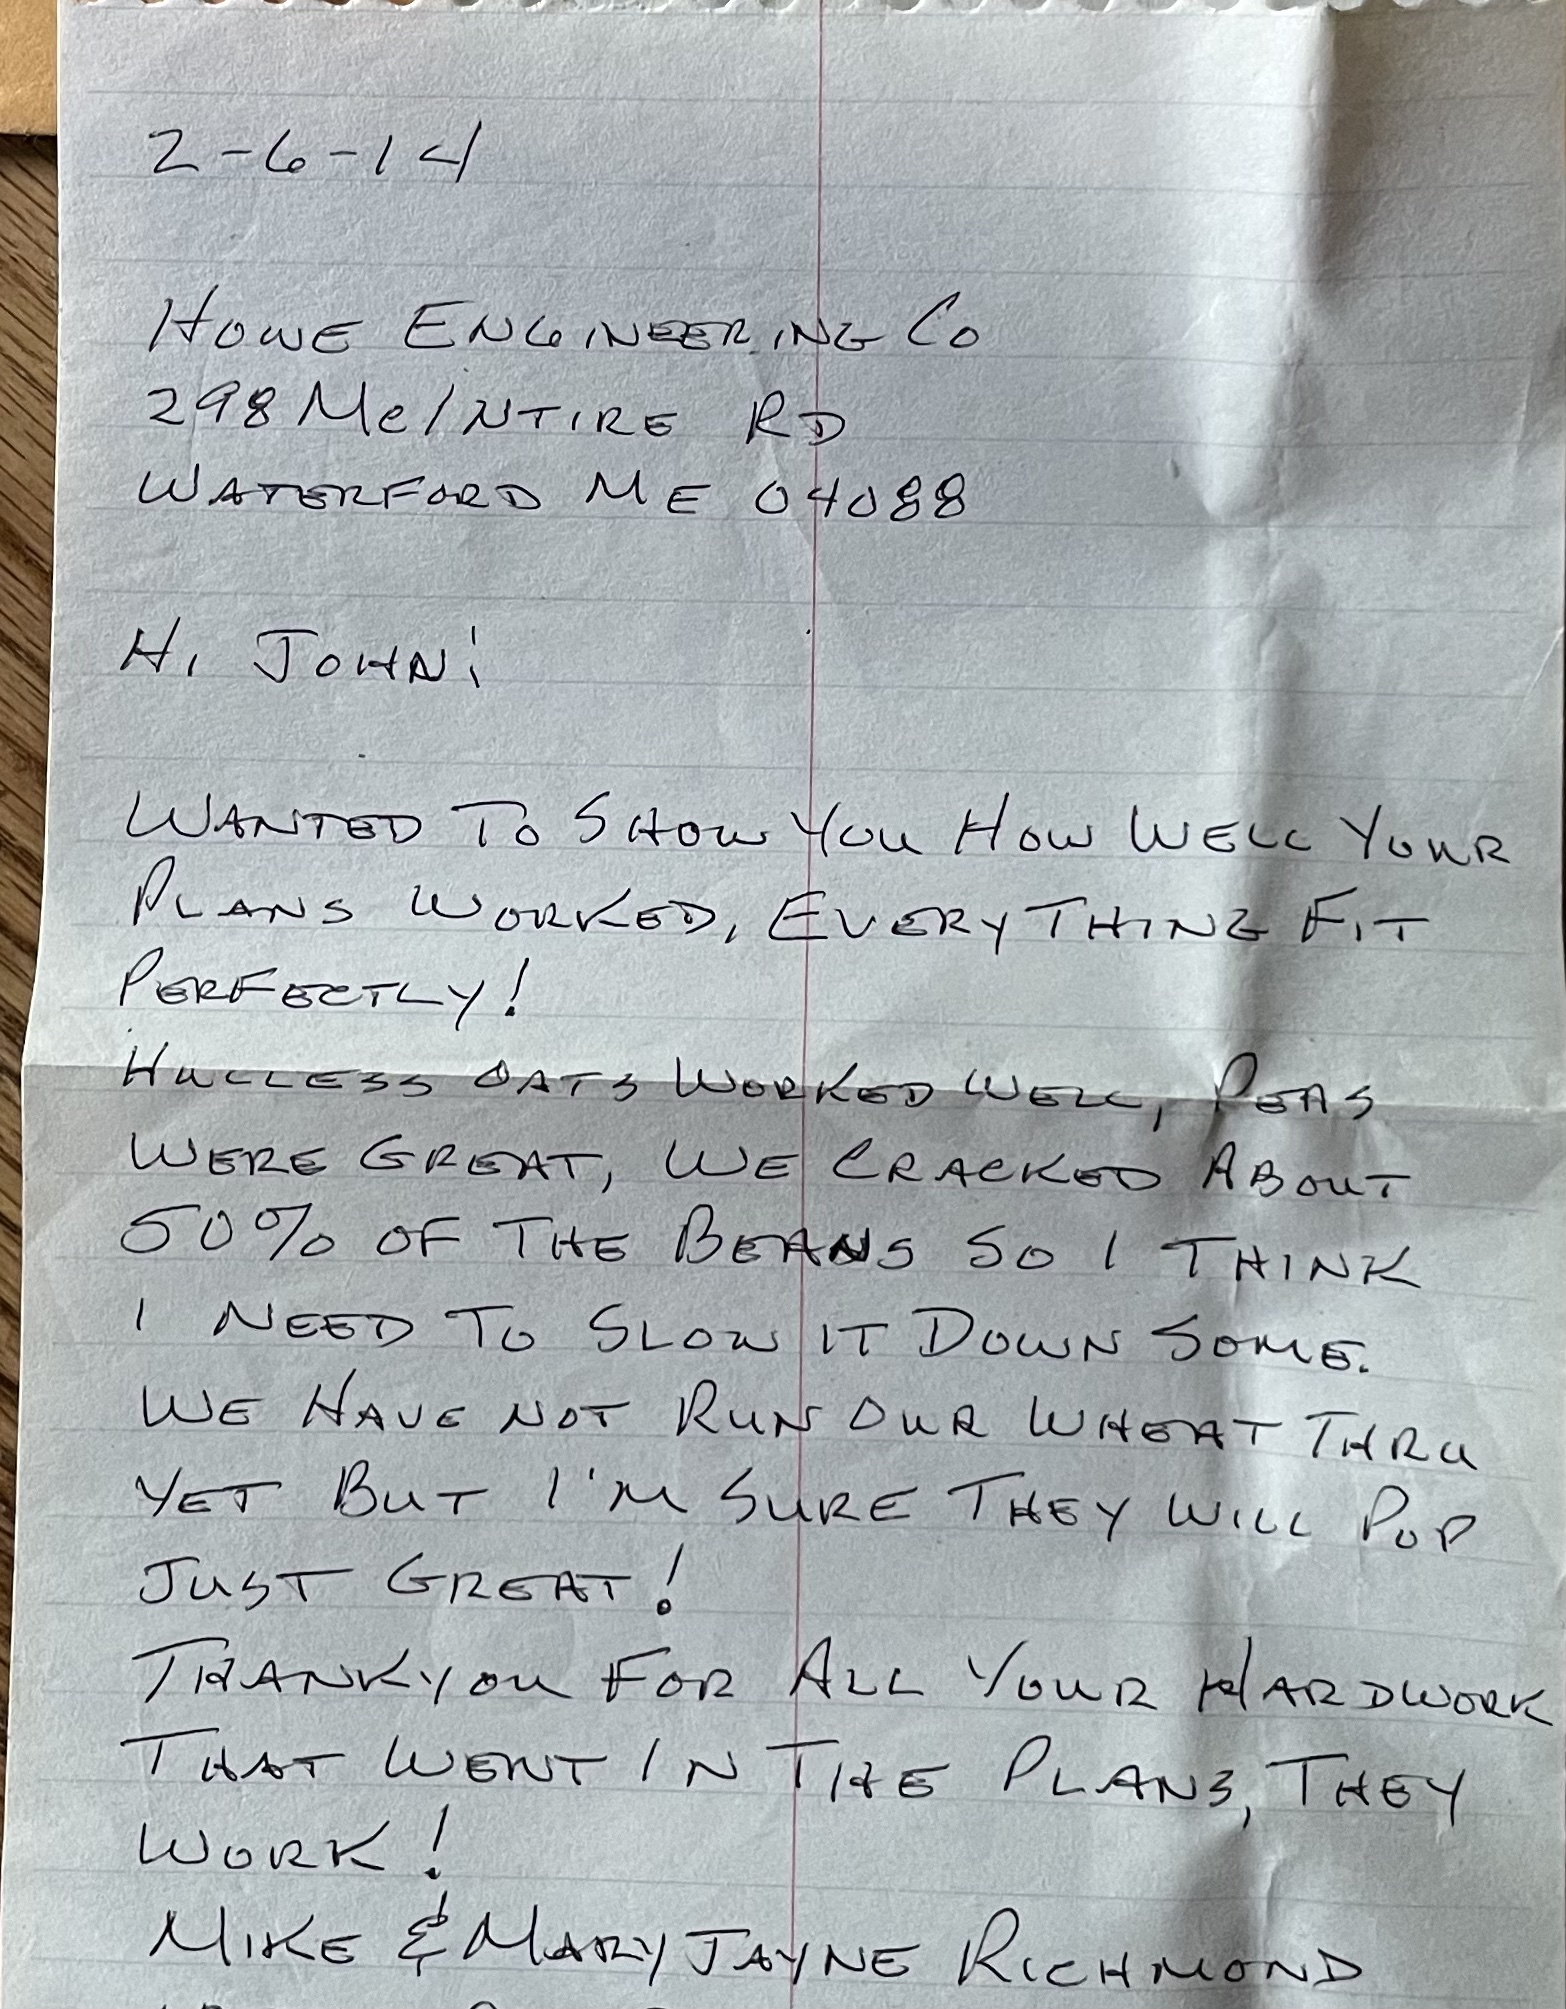 2-6-14
HOWE ENGINEERING CO
298 McINTIRE RD
WATERFORD ME 04088
HI JOHN;
WANTED TO SHOW YOU HOW WELL YOUR
PLANS WORKED, EVERYTHING FIT
PERFECTLY!
HULLESS OATS WORKED WELL, PEAS
WERE GREAT, WE CRACKED ABOUT
50% OF THE BEANS SO I THINK
I NEED TO SLOW IT DOWN SOME.
WE HAVE NOT RUN OUR WHEAT THRU
YET BUT I'M SURE THEY WILL POP
JUST GREAT!
THANKYOU FOR ALL YOUR HARDWORK
THAT WENT IN THE PLANS, THEY
WORK!
MIKE & MARYJAYNE RICHMOND